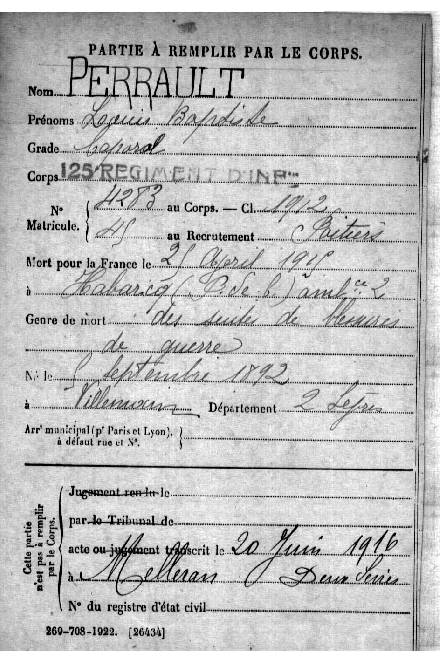 PARTIE À REMPLIR PAR LE CORPS.
Nom PERRAULT
Prénoms Louis Baptiste
Grade Caporal
Corps 125e REGIMENT D'INFie
N° Matricule. { 4283 au Corps. — Cl. 1912
45 au Recrutement Poitiers
Mort pour la France le 25 April 1915
à Habarcq (P. de C.) ambce 2
Genre de mort des suites de blessures
de guerre
Né le septembre 1892
à Villemain Département 2 Sèvres
Arrt municipal (pr Paris et Lyon), à défaut rue et N°. }
Cette partie n'est pas à remplir par le Corps.
Jugement rendu le
par le Tribunal de
acte ou jugement transcrit le 20 Juin 1916
à Melleran Deux Sèvres
N° du registre d'état civil
269-708-1922. [26434]